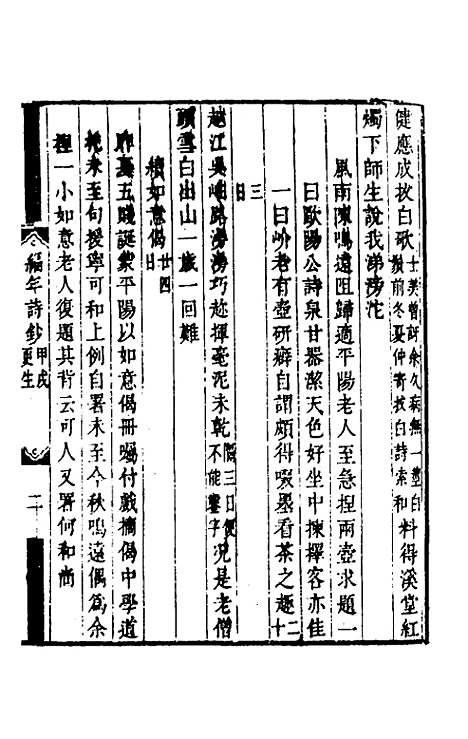 健應成妝白歌士美曾訝余久病無一莖白鬚前冬夏仲寄妝白詩索和料得溪堂紅
燭下師生說我涕滂沱
風雨陳鳴遠阻歸適平陽老人至急捏兩壺求題一
曰歐陽公詩泉甘器潔天色好坐中揀擇客亦佳
一曰岕老有壺研癖自謂頗得啜墨看茶之趣二十
三日
越江吳岫路湯湯巧趁揮毫泥未乾隔三日便不能鐫字況是老僧
頭雪白出山一歲一回難
續如意偈廿四日
昨夏五賤誕蒙平陽以如意偈冊囑付戲摘偈中學道
老未至句援寧可和上例自署未至今秋鳴遠偶為余
捏一小如意老人復題其背云可人又署何和尚
編年詩鈔 甲戌 更生
二